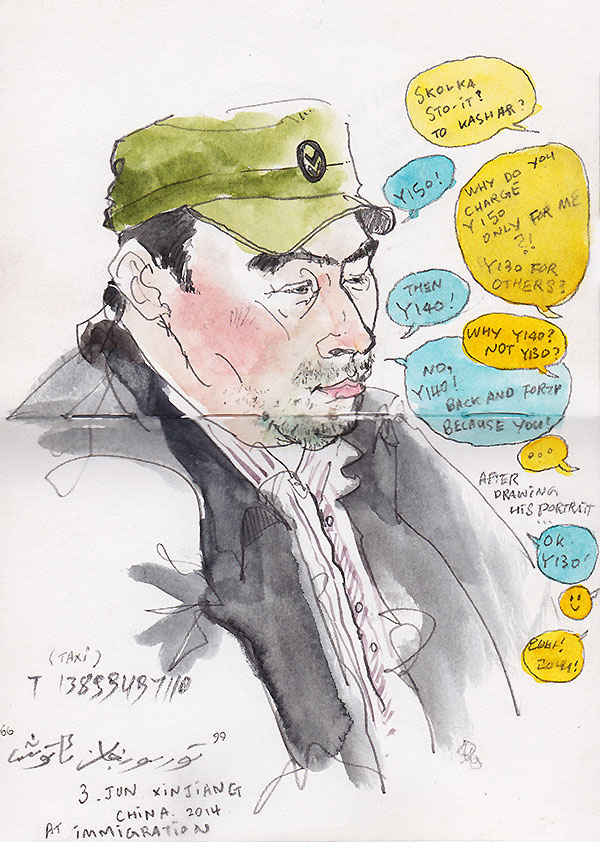 SKOLKA
STO-IT?
TO KASHAR?
Y150!
WHY DO YOU
CHARGE
Y150
ONLY FOR ME
?!
Y130 FOR
OTHERS?
THEN
Y140!
WHY Y140?
NOT Y130?
NO,
Y140!
BACK AND FORTH
BECAUSE YOU!
...
AFTER
DRAWING
HIS PORTRAIT
...
OK
Y130!
(TAXI)
T
3. JUN XINJIANG
CHINA. 2014
AT IMMIGRATION